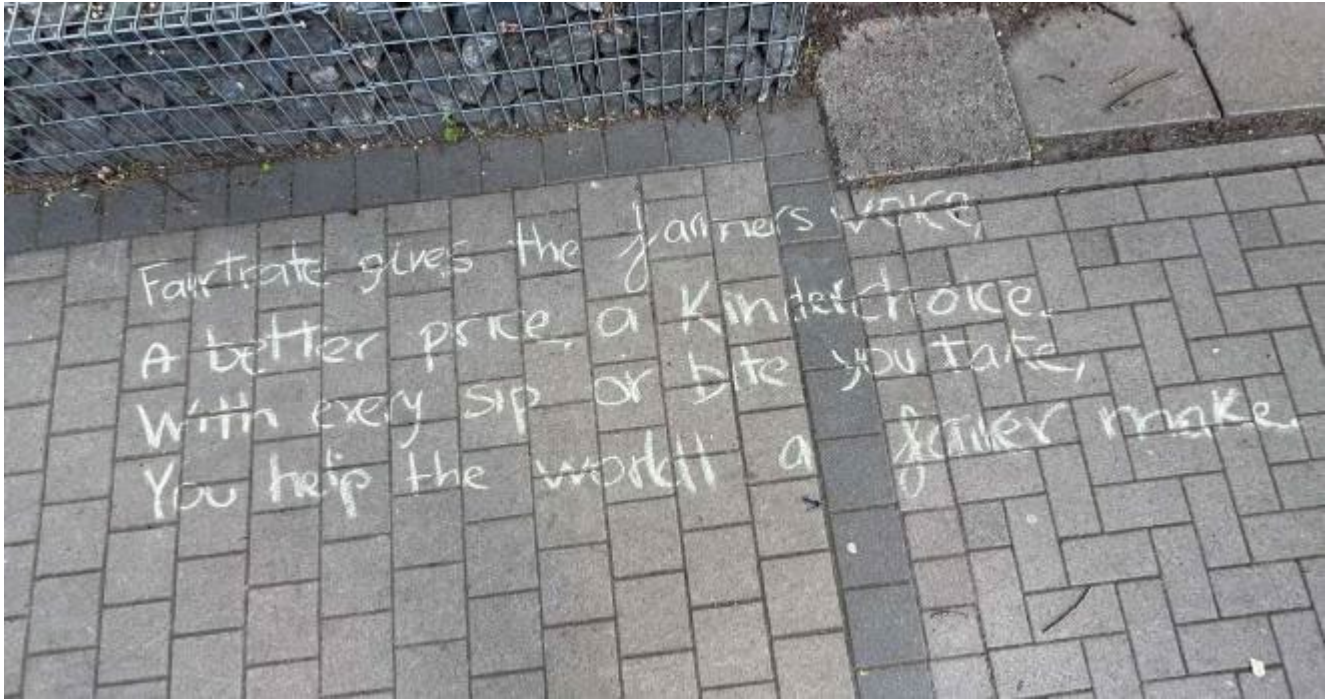 Fairtrate gives the farmers voice,
A better price, a Kinder choice.
With every sip or bite you take,
You help the world a fairer make.